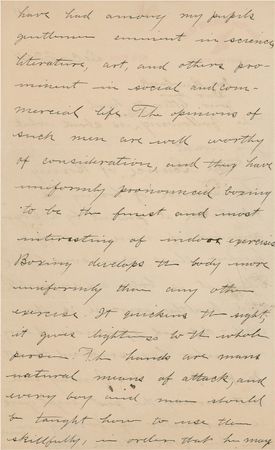 have had among my pupils
gentlemen eminent in science,
literature, art, and others pro-
minent in social and com-
mercial life. The opinions of
such men are well worthy
of consideration, and they have
uniformly pronounced boxing
to be the finest and most
interesting of indoor exercises.
Boxing develops the body more
uniformly than any other
exercise. It quickens the sight,
it gives lightness to the whole
person. The hands are mans
natural means of attack, and
every boy and man should
be taught how to use them
skillfully, in order that he may